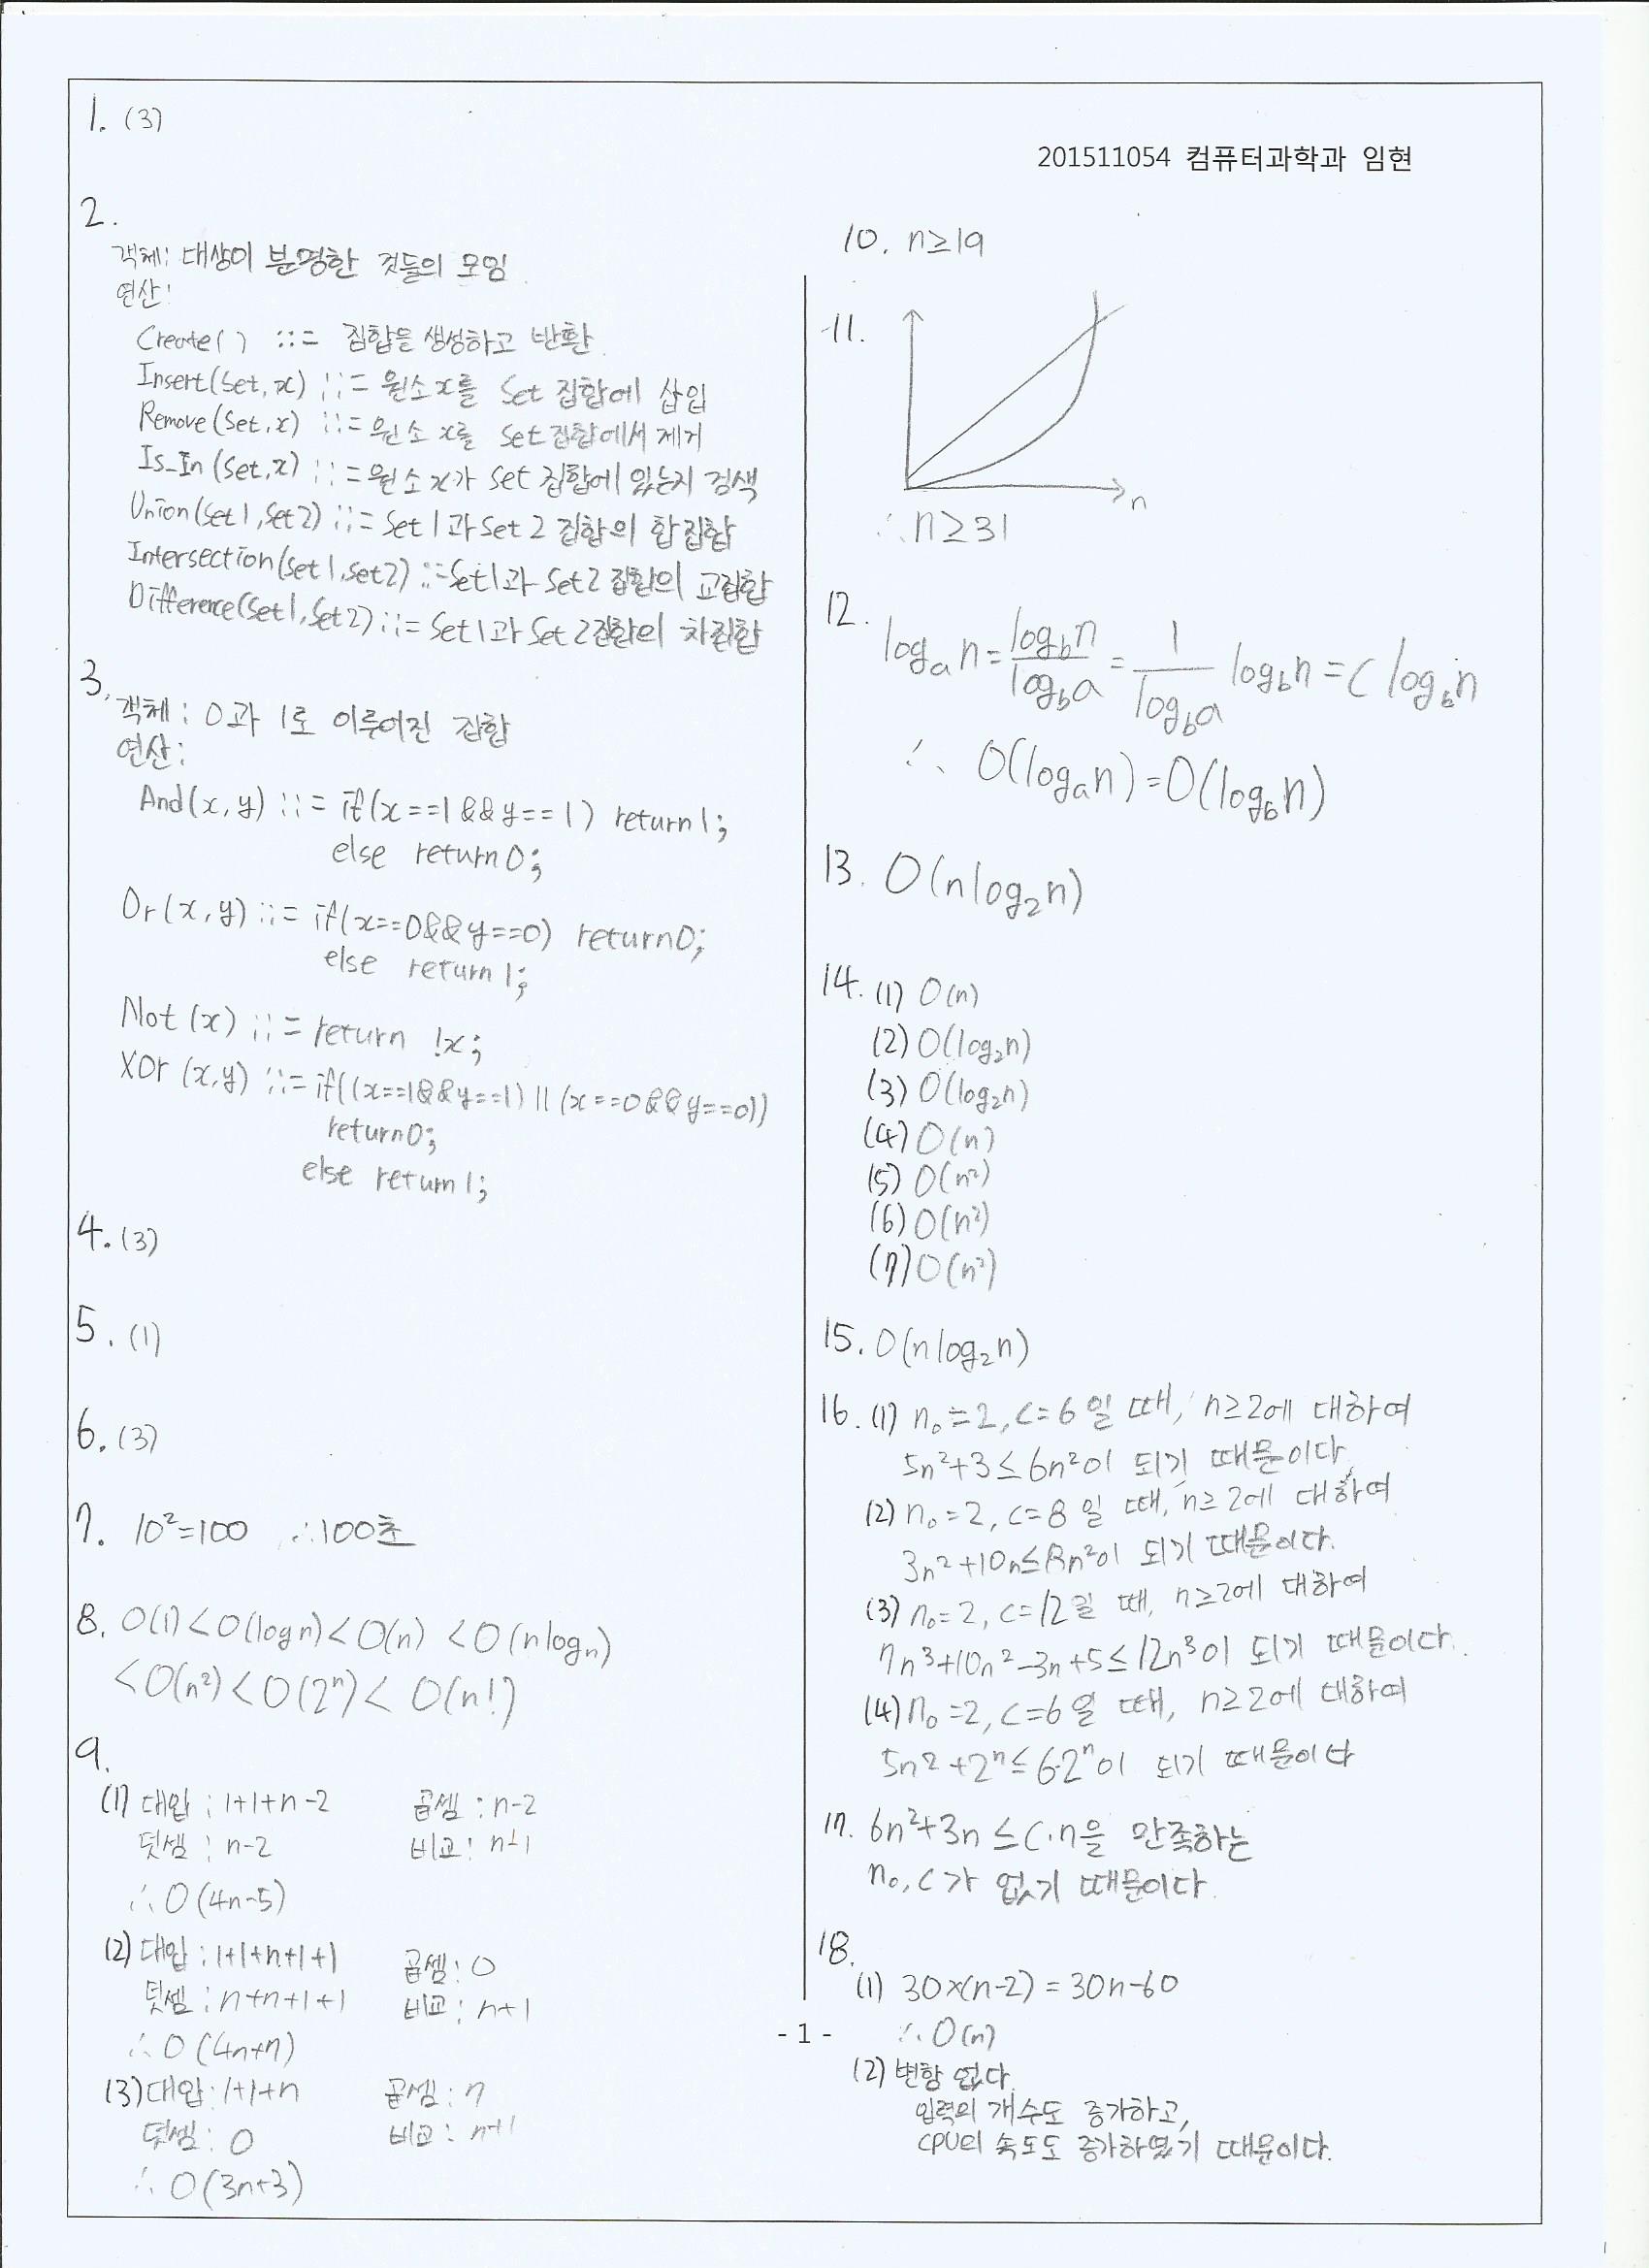 201511054 컴퓨터과학과 임현
1. (3)
2.
객체: 대상이 분명한 것들의 모임
연산:
Create() ::= 집합을 생성하고 반환
Insert(Set, x) ::= 원소 x를 Set 집합에 삽입
Remove(Set, x) ::= 원소 x를 Set 집합에서 제거
Is_In(Set, x) ::= 원소 x가 set 집합에 있는지 검색
Union(Set1, Set2) ::= Set1과 Set2 집합의 합집합
Intersection(Set1, Set2) ::= Set1과 Set2 집합의 교집합
Difference(Set1, Set2) ::= Set1과 Set2 집합의 차집합
3.
객체: 0과 1로 이루어진 집합
연산:
And(x, y) ::= if(x==1&&y==1) return1;
else return0;
Or(x, y) ::= if(x==0&&y==0) return0;
else return1;
Not(x) ::= return !x;
XOr(x,y) ::= if((x==1&&y==1)||(x==0&&y==0))
return0;
else return1;
4. (3)
5. (1)
6. (3)
7. 10²=100 ∴100초
8. O(1)<O(logn)<O(n)<O(nlogn)
<O(n²)<O(2ⁿ)<O(n!)
9.
(1) 대입: 1+1+n-2 곱셈: n-2
덧셈: n-2 비교: n-1
∴O(4n-5)
(2) 대입: 1+1+n+1+1 곱셈: 0
덧셈: n+n+1+1 비교: n+1
∴O(4n+7)
(3) 대입: 1+1+n 곱셈: n
덧셈: 0 비교: n+1
∴O(3n+3)
10. n≥19
11.
n
∴n≥31
12. logₐn = log_b n / log_b a = 1 / log_b a log_b n = C log_b n
∴ O(logₐn)=O(log_b n)
13. O(nlog₂n)
14. (1) O(n)
(2) O(log₂n)
(3) O(log₂n)
(4) O(n)
(5) O(n²)
(6) O(n²)
(7) O(n²)
15. O(nlog₂n)
16. (1) n₀=2, c=6일 때, n≥2에 대하여
5n²+3≤6n²이 되기 때문이다.
(2) n₀=2, c=8일 때, n≥2에 대하여
3n²+10n≤8n²이 되기 때문이다.
(3) n₀=2, c=12일 때, n≥2에 대하여
7n³+10n²-3n+5≤12n³이 되기 때문이다.
(4) n₀=2, c=6일 때, n≥2에 대하여
5n²+2ⁿ≤6·2ⁿ이 되기 때문이다
17. 6n²+3n≤C·n을 만족하는
n₀, c가 없기 때문이다.
18.
(1) 30×(n-2)=30n-60
∴O(n)
(2) 변함 없다.
입력의 개수도 증가하고,
CPU의 속도도 증가하였기 때문이다.
- 1 -